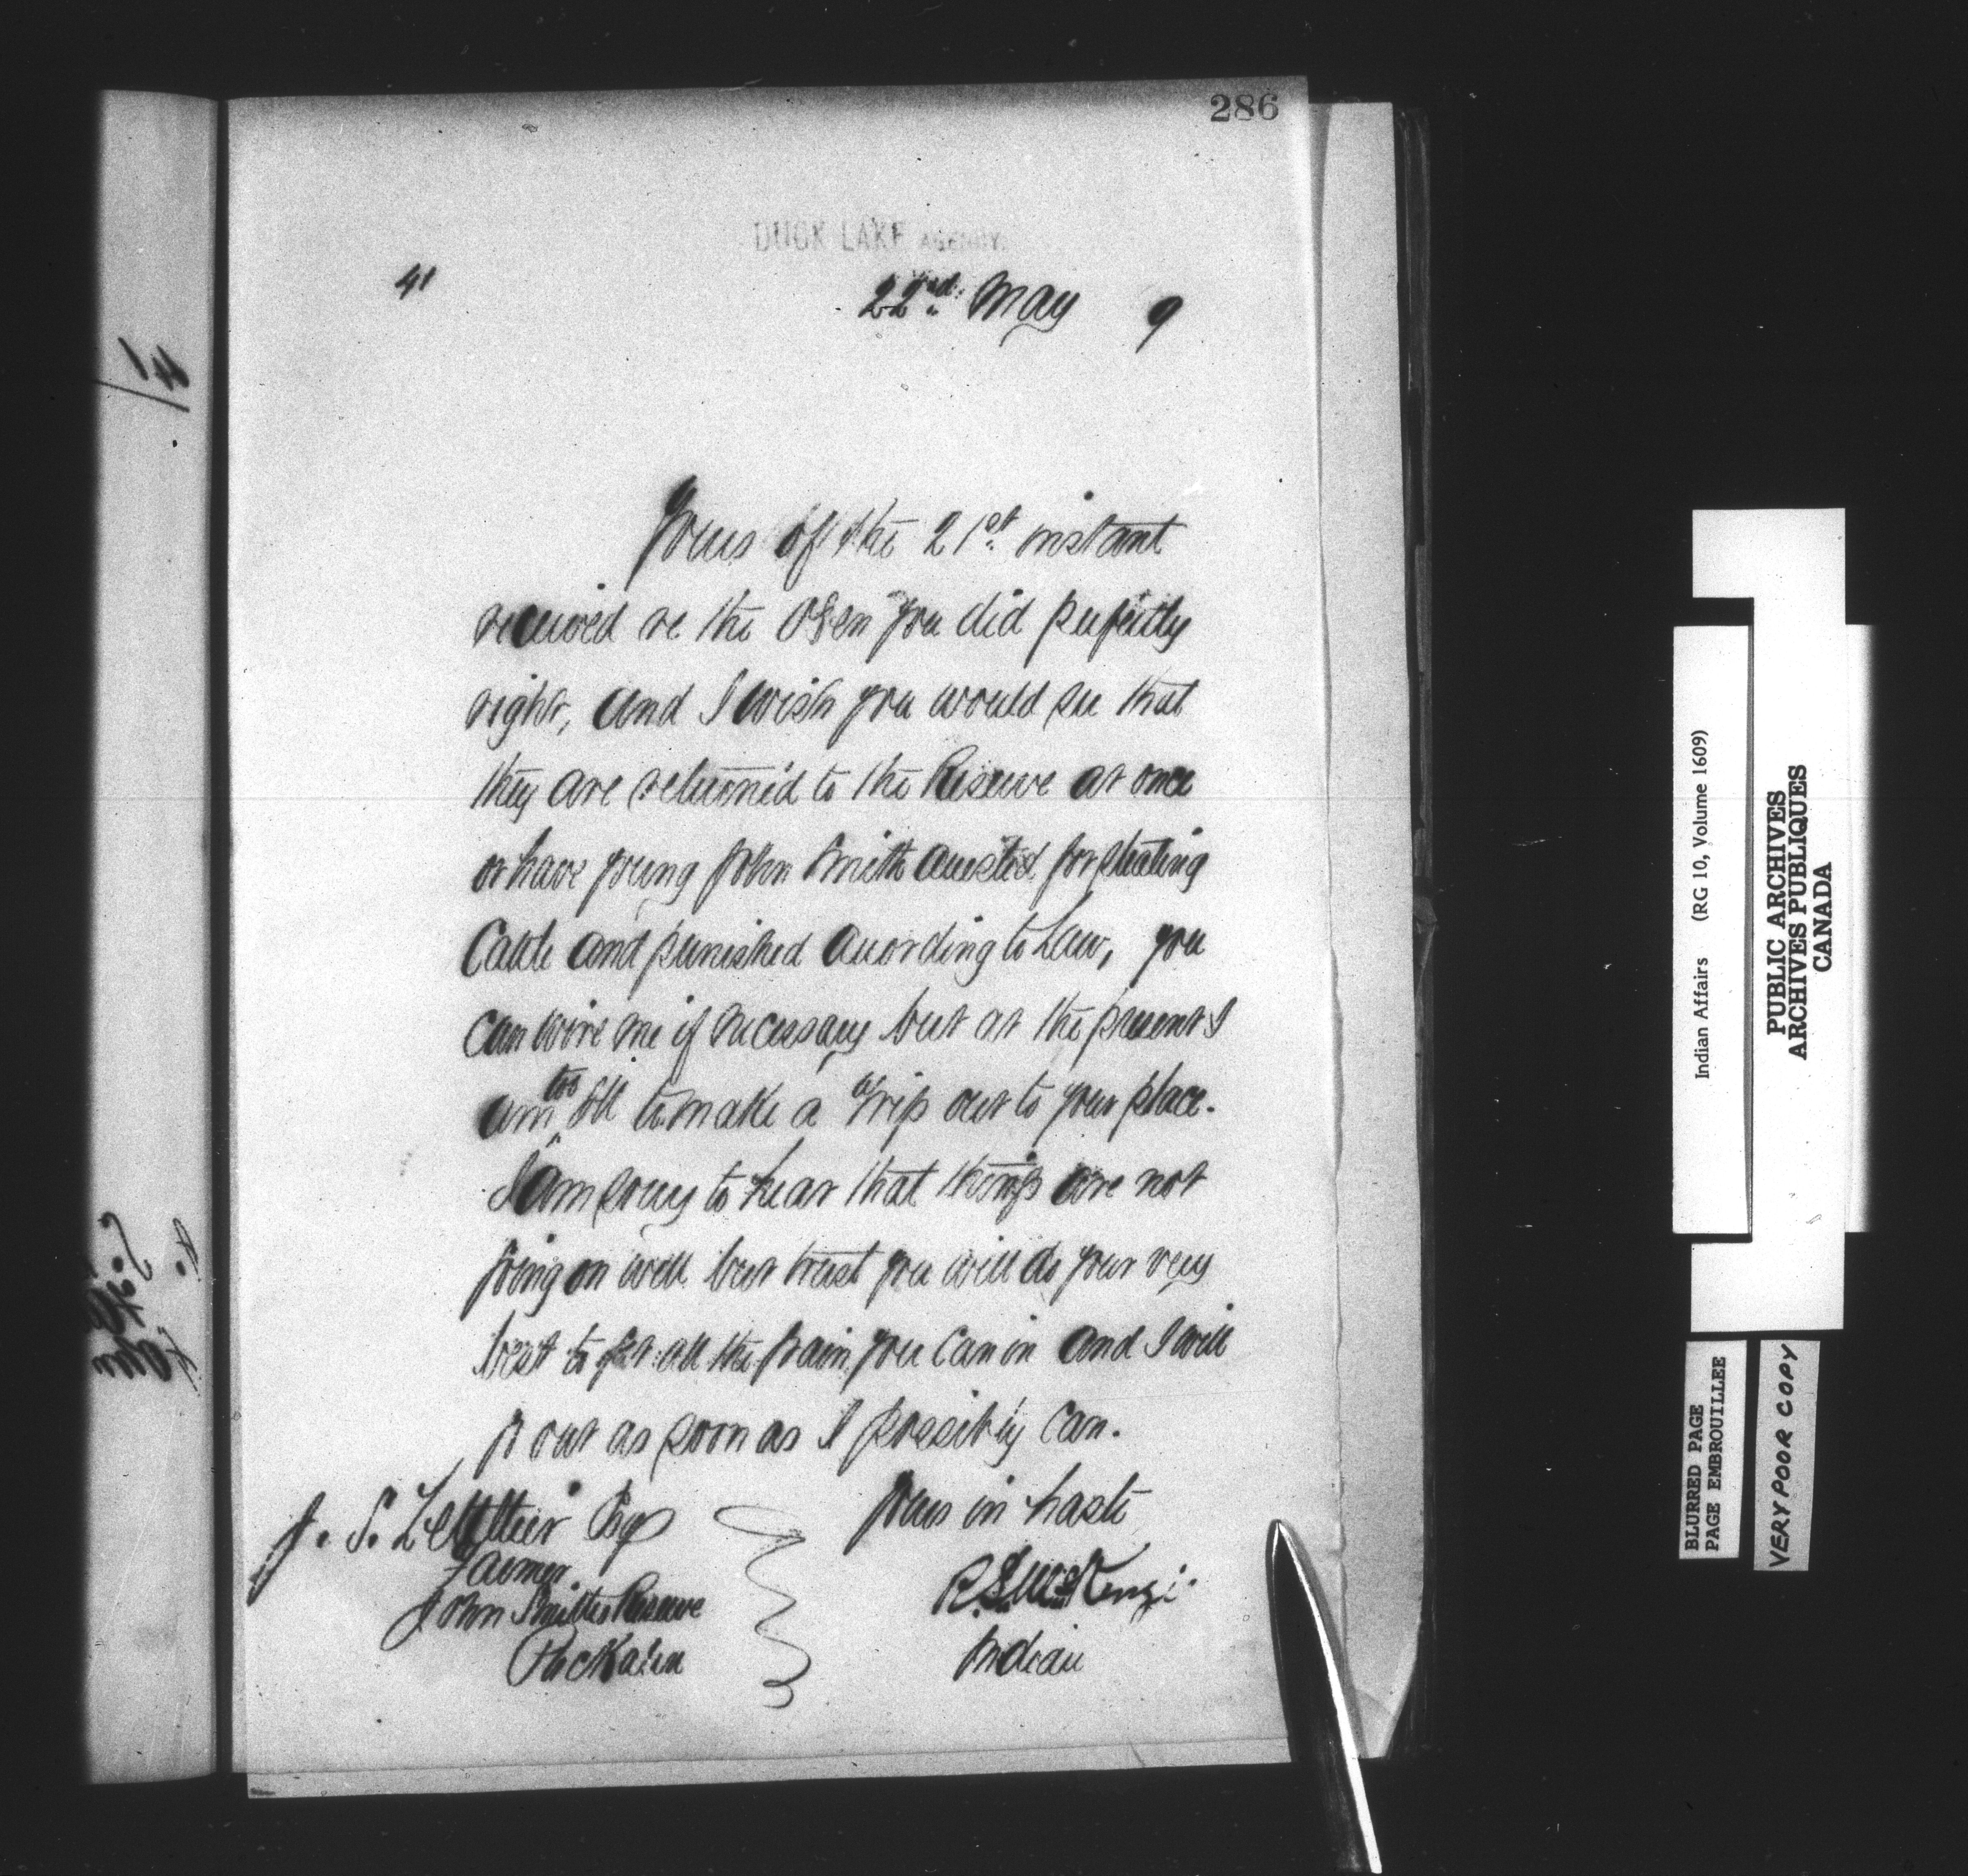 286
DUCK LAKE AGENCY.
41
22nd. May 9
Yours of the 21st. instant
received re the Oxen you did perfectly
right, and I wish you would see that
they are returned to the Reserve at once
or have young John Smith arrested for stealing
Cattle and punished according to Law, you
can wire me if necessary but at the present I
am too ill to make a trip out to your place.
I am sorry to hear that things are not
going on well but trust you will do your very
best to get all the grain you can in and I will
go out as soon as I possibly can.
Yours in haste
J. S. Letellier Esq
Farmer
John Smiths Reserve
R.S. McKenzie
Indian
41
Indian Affairs (RG 10, Volume 1609)
PUBLIC ARCHIVES
ARCHIVES PUBLIQUES
CANADA
BLURRED PAGE
PAGE EMBROUILLEE
VERY POOR COPY